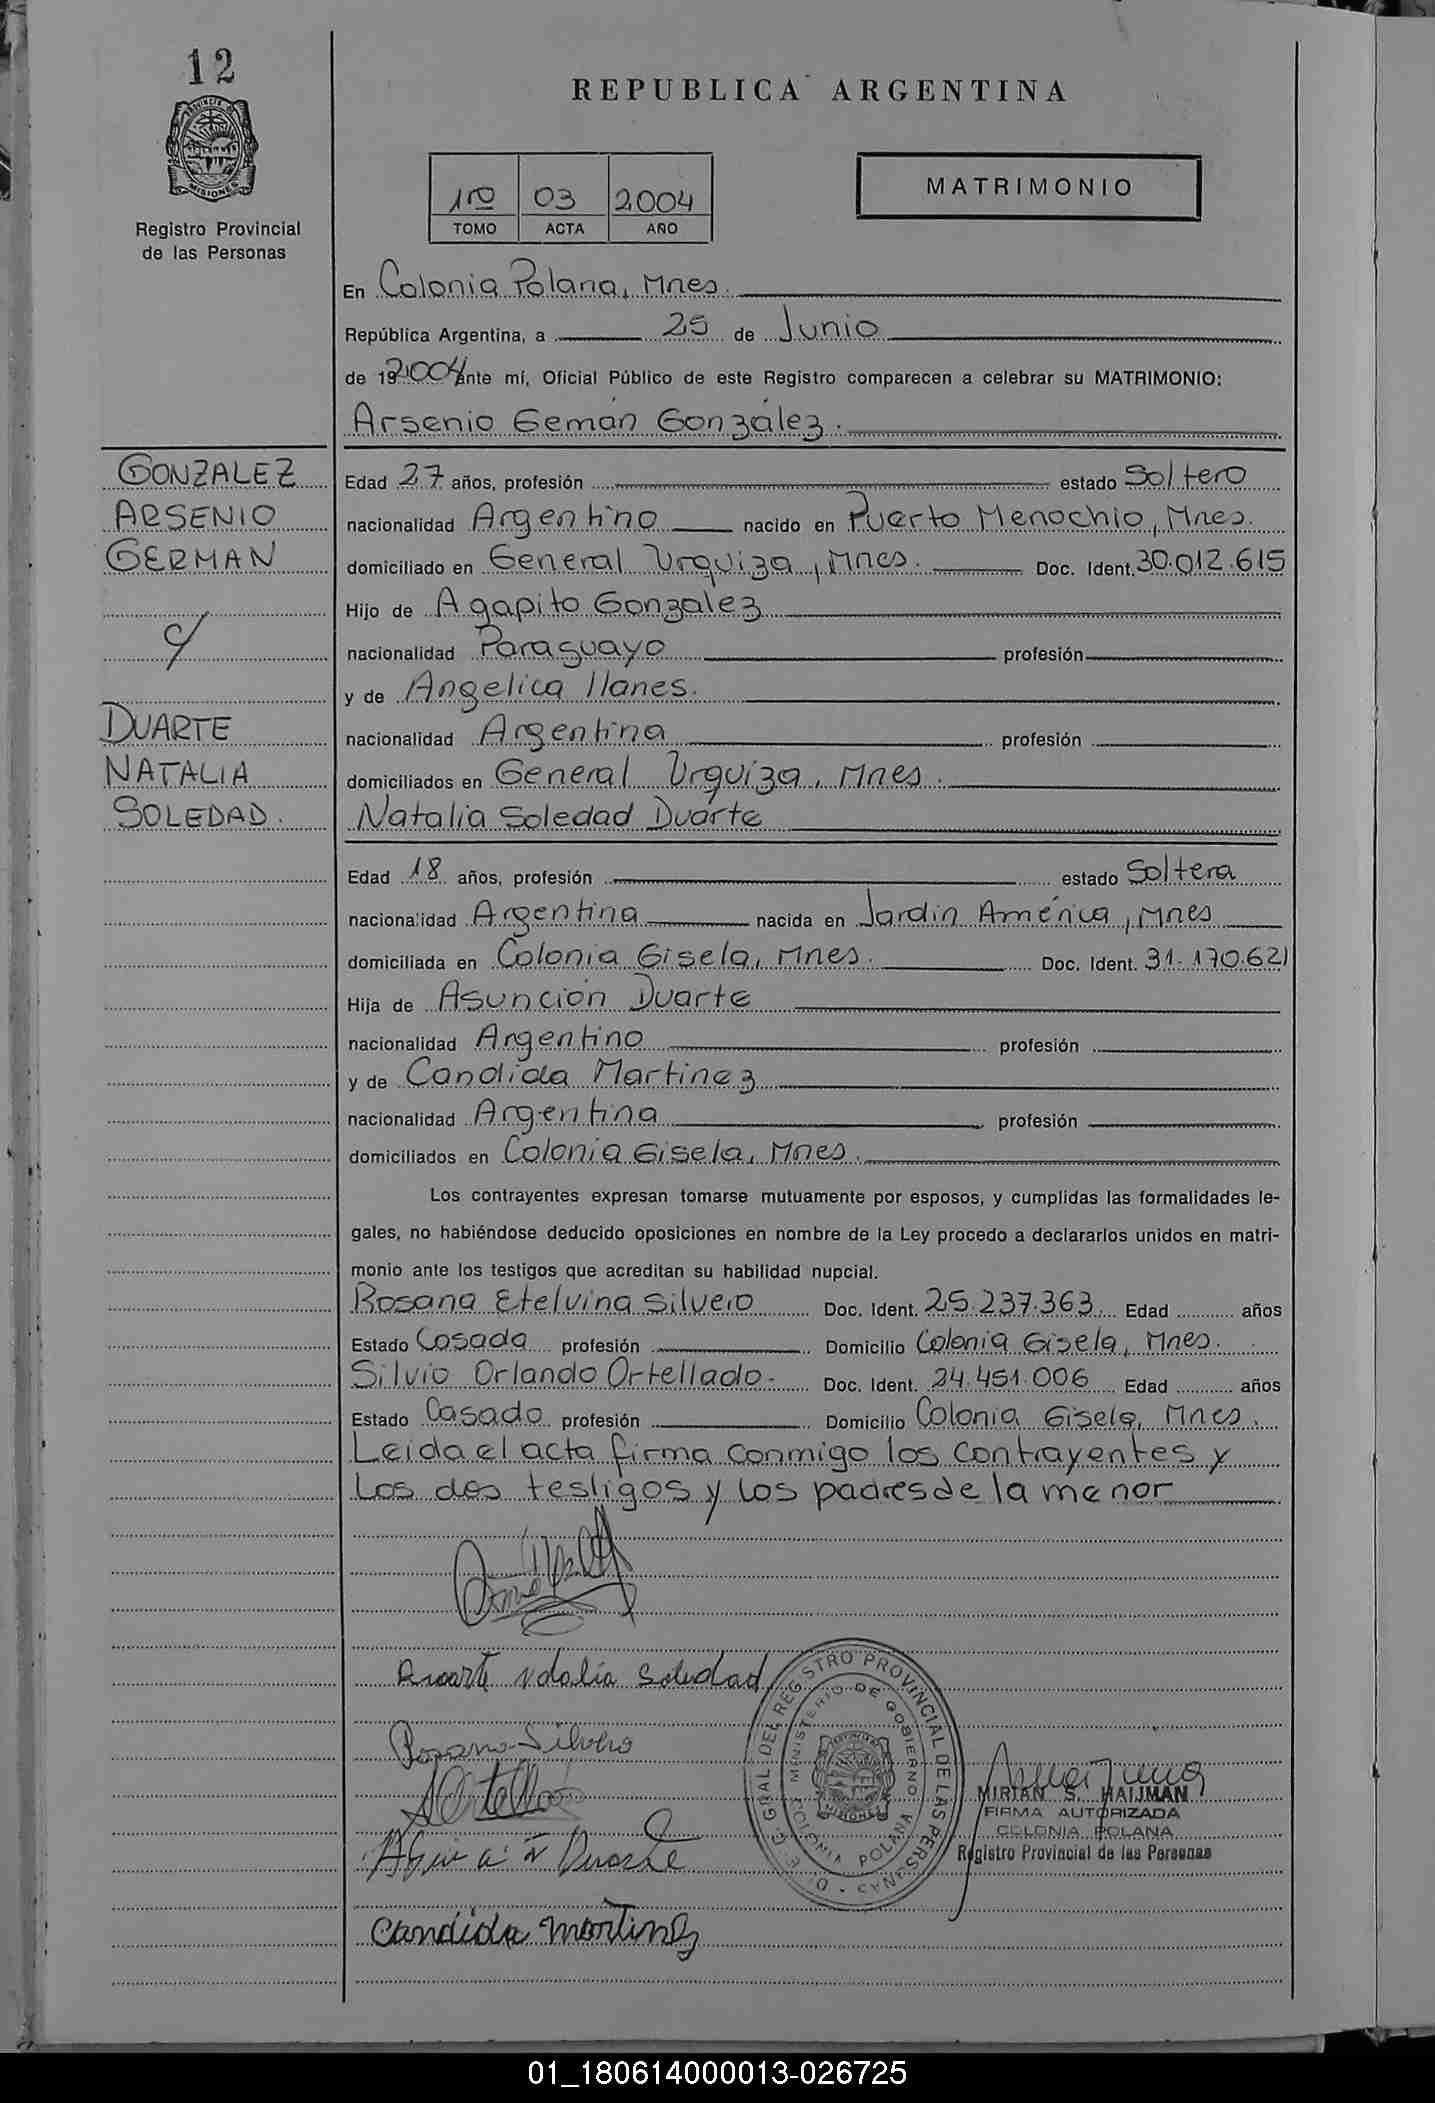 12
REPUBLICA ARGENTINA
MISIONES
Registro Provincial
de las Personas
1º 03 2004
TOMO ACTA AÑO
MATRIMONIO
En Colonia Polana, Mnes.
República Argentina, a 25 de Junio
de 192004 ante mí, Oficial Público de este Registro comparecen a celebrar su MATRIMONIO:
Arsenio Gemán González.
GONZALEZ
ARSENIO
GERMAN
c/
DUARTE
NATALIA
SOLEDAD.
Edad 27 años, profesión estado Soltero
nacionalidad Argentino nacido en Puerto Menochio, Mnes.
domiciliado en General Urquiza, Mnes. Doc. Ident. 30.012.615
Hijo de Agapito Gonzalez
nacionalidad Paraguayo profesión
y de Angelica Ilanes.
nacionalidad Argentina profesión
domiciliados en General Urquiza, Mnes.
Natalia Soledad Duarte
Edad 18 años, profesión estado Soltera
nacionalidad Argentina nacida en Jardin América, Mnes
domiciliada en Colonia Gisela, Mnes. Doc. Ident. 31.170.621
Hija de Asunción Duarte
nacionalidad Argentino profesión
y de Candida Martinez
nacionalidad Argentina profesión
domiciliados en Colonia Gisela, Mnes.
Los contrayentes expresan tomarse mutuamente por esposos, y cumplidas las formalidades le-
gales, no habiéndose deducido oposiciones en nombre de la Ley procedo a declararlos unidos en matri-
monio ante los testigos que acreditan su habilidad nupcial.
Rosana Etelvina Silvero Doc. Ident. 25.237.363 Edad años
Estado Casada profesión Domicilio Colonia Gisela, Mnes.
Silvio Orlando Ortellado. Doc. Ident. 24.451.006 Edad años
Estado Casado profesión Domicilio Colonia Gisela, Mnes.
Leida el acta firma conmigo los contrayentes y
los dos testigos y los padres de la menor
Duarte Natalia Soledad
Rosana Silvero
Duarte
Candida Martinez
D. G. GRAL DEL REGISTRO PROVINCIAL DE LAS PERSONAS
MINISTERIO DE GOBIERNO
COLONIA POLANA
MIRIAN S. HAIJMAN
FIRMA AUTORIZADA
COLONIA POLANA
Registro Provincial de las Personas
01_180614000013-026725